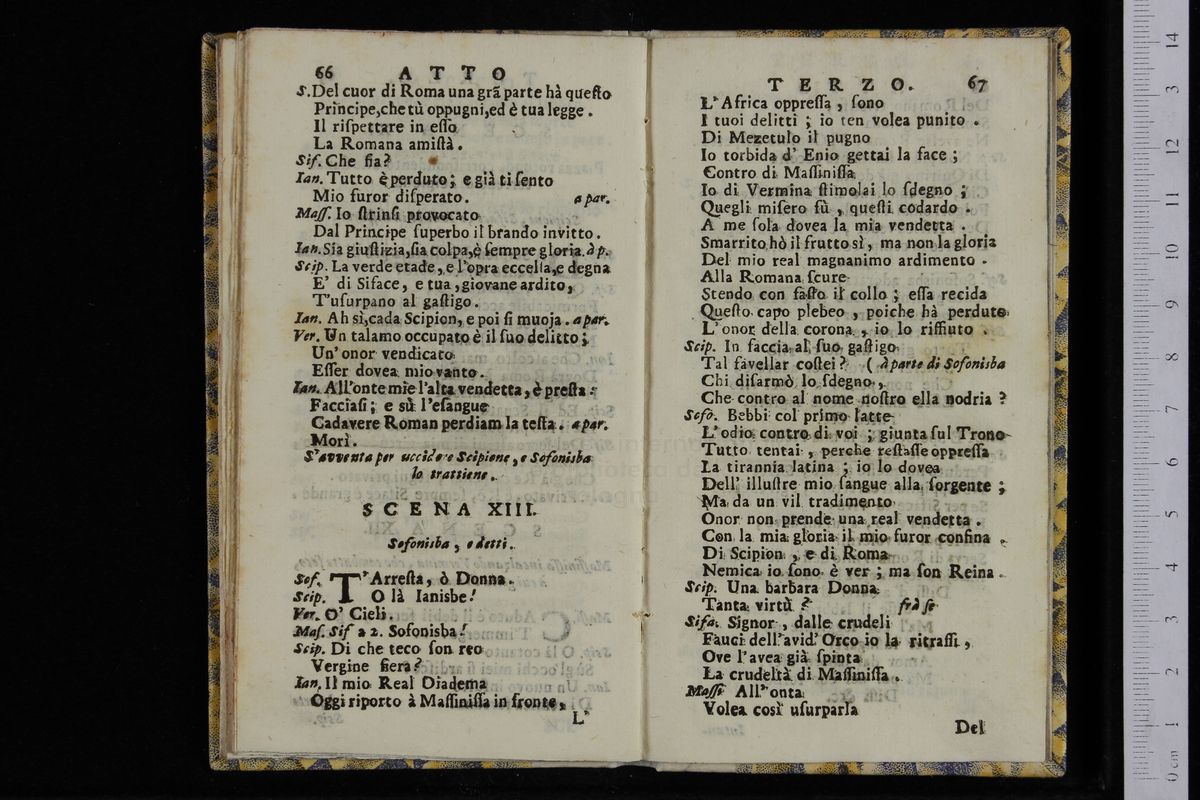 66 ATTO
S. Del cuor di Roma una grã parte hà queſto
Principe,che tù oppugni,ed è tua legge.
Il riſpettare in eſſo
La Romana amiſtà.
Sif. Che ſia?
Ian. Tutto è perduto; e già ti ſento
Mio furor diſperato. a par.
Maſſ. Io ſtrinſi provocato
Dal Principe ſuperbo il brando invitto.
Ian. Sia giuſtizia,ſia colpa,è ſempre gloria. à p.
Scip. La verde etade, e l'opra eccelſa,e degna
E' di Siface, e tua, giovane ardito,
T'uſurpano al gaſtigo.
Ian. Ah sì,cada Scipion, e poi ſi muoja. a par.
Ver. Un talamo occupato è il ſuo delitto;
Un' onor vendicato
Eſſer dovea mio vanto.
Ian. All'onte mie l'alta vendetta, è preſta:
Facciaſi; e sù l'eſangue
Cadavere Roman perdiam la teſta. a par.
Morì.
S'avventa per uccidere Scipione, e Sofonisba
lo trattiene.
SCENA XIII.
Sofonisba, e detti.
Sof. T'Arreſta, ò Donna.
Scip. O là Ianisbe!
Ver. O' Cieli.
Maſ. Sif a 2. Sofonisba!
Scip. Di che teco ſon reo
Vergine fiera?
Ian. Il mio Real Diadema
Oggi riporto à Maſſiniſſa in fronte,
L'
TERZO. 67
L'Africa oppreſſa, ſono
I tuoi delitti; io ten volea punito.
Di Mezetulo il pugno
Io torbida d' Enio gettai la face;
Contro di Maſſiniſſa
Io di Vermina ſtimolai lo ſdegno;
Quegli miſero fù, queſti codardo.
A me ſola dovea la mia vendetta.
Smarrito hò il frutto sì, ma non la gloria
Del mio real magnanimo ardimento.
Alla Romana ſcure
Stendo con faſto il collo; eſſa recida
Queſto capo plebeo, poiche hà perduto
L'onor della corona, io lo rifiuto.
Scip. In faccia al ſuo gaſtigo
Tal favellar coſtei? ( à parte di Sofonisba
Chi diſarmò lo ſdegno,
Che contro al nome noſtro ella nodria?
Sofo. Bebbi col primo latte
L'odio contro di voi; giunta ſul Trono
Tutto tentai, perche reſtaſſe oppreſſa
La tirannia latina; io lo dovea
Dell' illuſtre mio ſangue alla ſorgente;
Ma da un vil tradimento
Onor non prende una real vendetta.
Con la mia gloria il mio furor confina.
Di Scipion, e di Roma
Nemica io ſono è ver; ma ſon Reina.
Scip. Una barbara Donna
Tanta virtù? frà ſe
Sifa. Signor, dalle crudeli
Fauci dell'avid' Orco io la ritraſſi,
Ove l'avea già ſpinta
La crudeltà di Maſſiniſſa.
Maſſi All' onta
Volea così uſurparla
Del